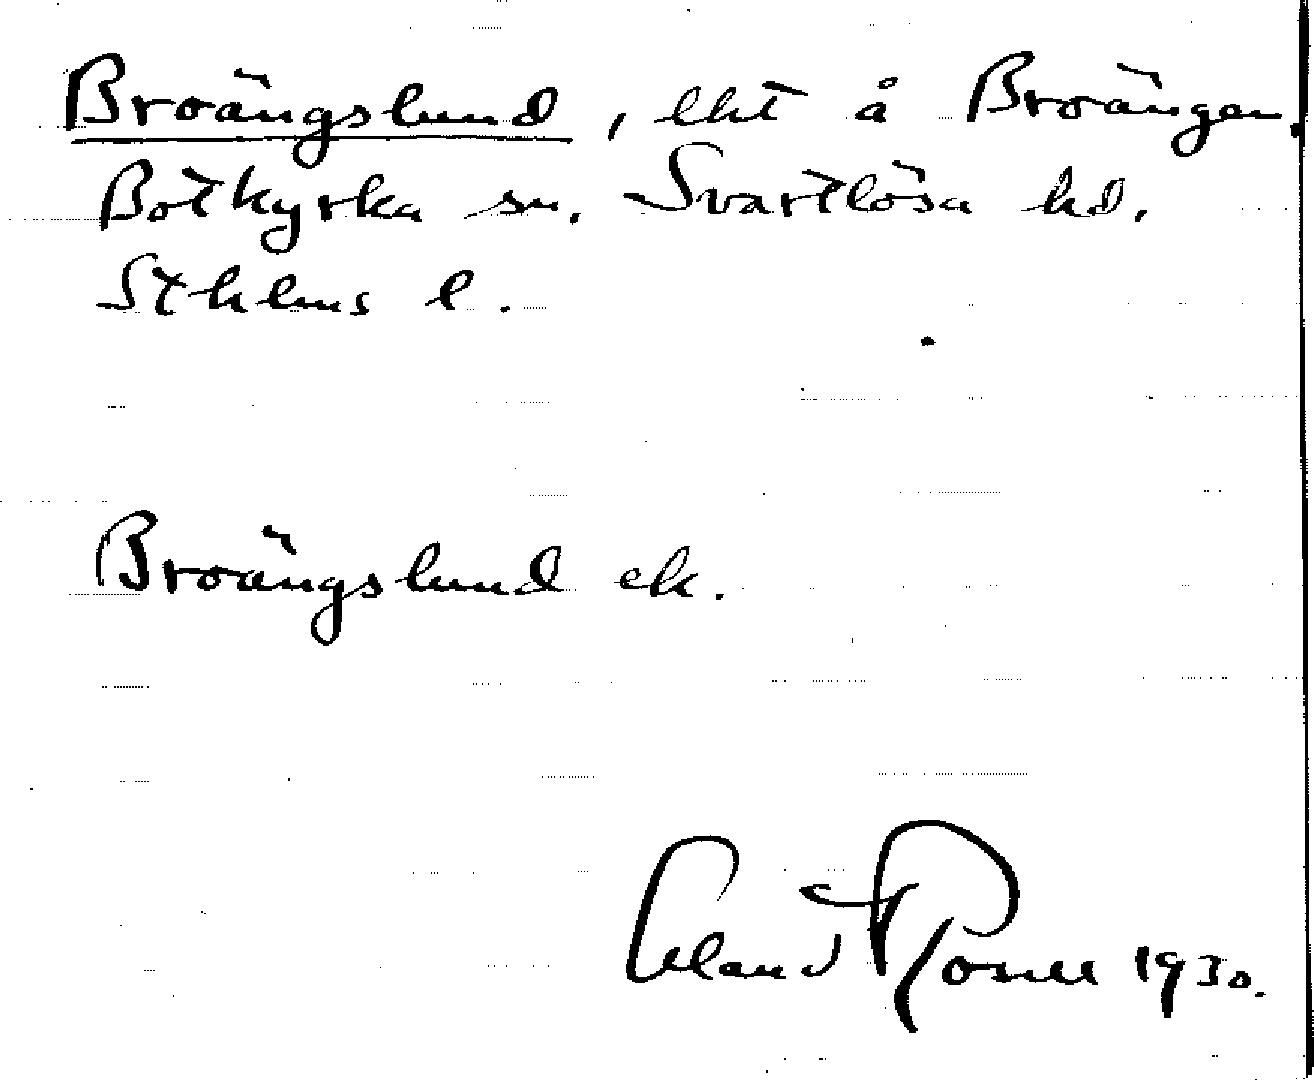 Broängslund, lht å Broängen,
Botkyrka sn. Svartlösa hd.
Sthlms l.
Broängslund ek.
Erland Rosell 1930.